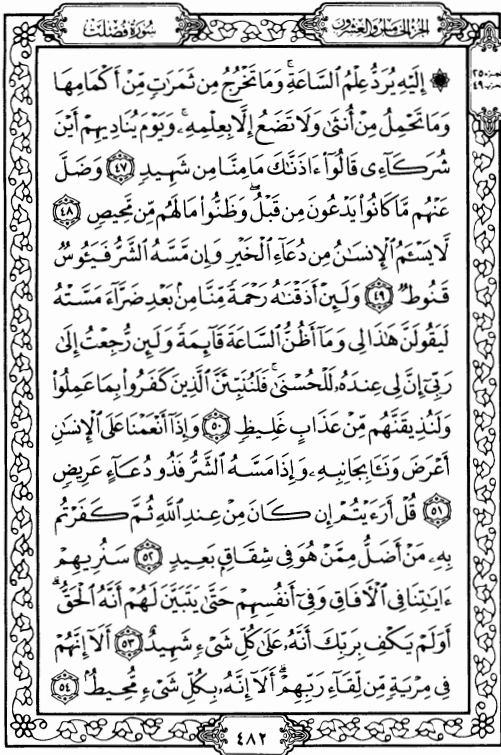 سُورَةُ فُصِّلَتْ
الجُزْءُ الخَامِسُ وَالعِشْرُونَ
۞ إِلَيْهِ يُرَدُّ عِلْمُ ٱلسَّاعَةِ ۚ وَمَا تَخْرُجُ مِن ثَمَرَٰتٍ مِّنْ أَكْمَامِهَا
وَمَا تَحْمِلُ مِنْ أُنثَىٰ وَلَا تَضَعُ إِلَّا بِعِلْمِهِۦ ۚ وَيَوْمَ يُنَادِيهِمْ أَيْنَ
شُرَكَآءِى قَالُوٓا۟ ءَاذَنَّٰكَ مَا مِنَّا مِن شَهِيدٍ ٤٧ وَضَلَّ
عَنْهُم مَّا كَانُوا۟ يَدْعُونَ مِن قَبْلُ ۖ وَظَنُّوا۟ مَا لَهُم مِّن مَّحِيصٍ ٤٨
لَّا يَسْـَٔمُ ٱلْإِنسَٰنُ مِن دُعَآءِ ٱلْخَيْرِ وَإِن مَّسَّهُ ٱلشَّرُّ فَيَـُٔوسٌ
قَنُوطٌ ٤٩ وَلَئِنْ أَذَقْنَٰهُ رَحْمَةً مِّنَّا مِنۢ بَعْدِ ضَرَّآءَ مَسَّتْهُ
لَيَقُولَنَّ هَٰذَا لِى وَمَآ أَظُنُّ ٱلسَّاعَةَ قَآئِمَةً وَلَئِن رُّجِعْتُ إِلَىٰ
رَبِّىٓ إِنَّ لِى عِندَهُۥ لَلْحُسْنَىٰ ۚ فَلَنُنَبِّئَنَّ ٱلَّذِينَ كَفَرُوا۟ بِمَا عَمِلُوا۟
وَلَنُذِيقَنَّهُم مِّنْ عَذَابٍ غَلِيظٍ ٥٠ وَإِذَآ أَنْعَمْنَا عَلَى ٱلْإِنسَٰنِ
أَعْرَضَ وَنَـَٔا بِجَانِبِهِۦ وَإِذَا مَسَّهُ ٱلشَّرُّ فَذُو دُعَآءٍ عَرِيضٍ
٥١ قُلْ أَرَءَيْتُمْ إِن كَانَ مِنْ عِندِ ٱللَّهِ ثُمَّ كَفَرْتُم
بِهِۦ مَنْ أَضَلُّ مِمَّنْ هُوَ فِى شِقَاقٍۭ بَعِيدٍ ٥٢ سَنُرِيهِمْ
ءَايَٰتِنَا فِى ٱلْـَٔافَاقِ وَفِىٓ أَنفُسِهِمْ حَتَّىٰ يَتَبَيَّنَ لَهُمْ أَنَّهُ ٱلْحَقُّ ۗ
أَوَلَمْ يَكْفِ بِرَبِّكَ أَنَّهُۥ عَلَىٰ كُلِّ شَىْءٍ شَهِيدٌ ٥٣ أَلَآ إِنَّهُمْ
فِى مِرْيَةٍ مِّن لِّقَآءِ رَبِّهِمْ ۗ أَلَآ إِنَّهُۥ بِكُلِّ شَىْءٍ مُّحِيطٌۢ ٥٤
٤٨٢